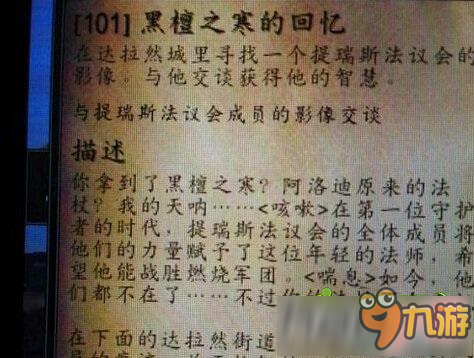 [101] 黑檀之寒的回忆
在达拉然城里寻找一个提瑞斯法议会的
影像。与他交谈获得他的智慧。
与提瑞斯法议会成员的影像交谈
描述
你拿到了黑檀之寒？阿洛迪原来的法
杖？我的天呐……<咳嗽>在第一位守护
者的时代，提瑞斯法议会的全体成员将
他们的力量赋予了这位年轻的法师，希
望他能战胜燃烧军团。<喘息>如今，他
们都不在了……不过
在下面的达拉然街道
九游